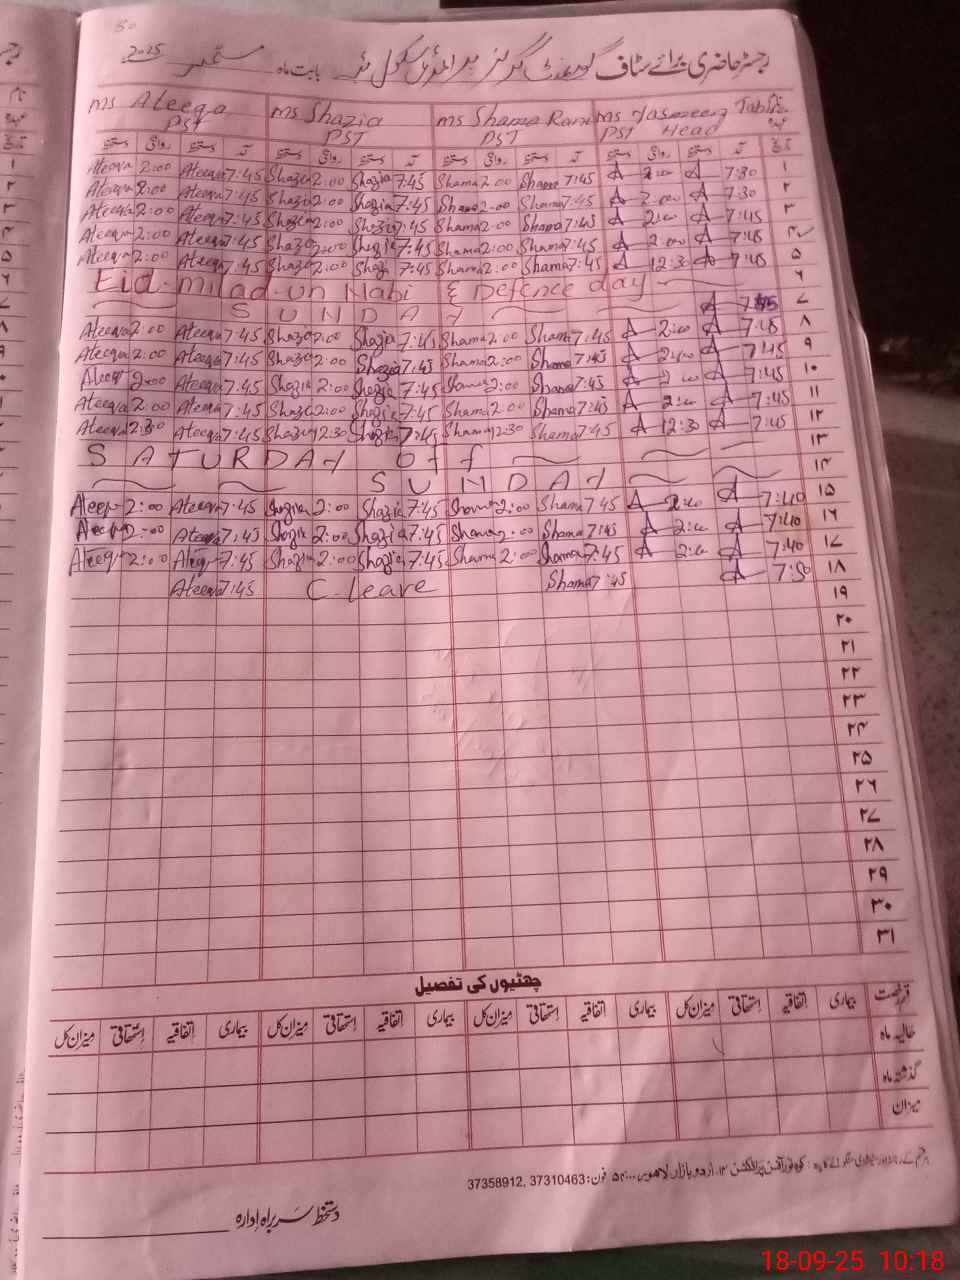 50
رجسٹر حاضری برائے سٹاف گورنمنٹ گرلز پرائمری سکول بابت ماہ ستمبر 2025
Ms Ateeqa Ms Shazia Ms Shama Rani Ms Yasmeen Tabir نام
PST PST PST PST Head عہدہ
دستخط روانگی دستخط آمد دستخط روانگی دستخط آمد دستخط روانگی دستخط آمد دستخط روانگی دستخط آمد تاریخ
Ateeqa 2:00 Ateeqa 7:45 Shazia 2:00 Shazia 7:45 Shama 2:00 Shama 7:45 A 2:00 A 7:30 ۱
Ateeqa 2:00 Ateeqa 7:45 Shazia 2:00 Shazia 7:45 Shama 2:00 Shama 7:45 A 2:00 A 7:30 ۲
Ateeqa 2:00 Ateeqa 7:45 Shazia 2:00 Shazia 7:45 Shama 2:00 Shama 7:45 A 2:00 A 7:45 ۳
Ateeqa 2:00 Ateeqa 7:45 Shazia 2:00 Shazia 7:45 Shama 2:00 Shama 7:45 A 2:00 A 7:45 ۴
Ateeqa 2:00 Ateeqa 7:45 Shazia 2:00 Shazia 7:45 Shama 2:00 Shama 7:45 A 12:30 A 7:45 ۵
Eid-milad-un Nabi & Defence day ۶
SUNDAY A 7:45 ۷
Ateeqa 2:00 Ateeqa 7:45 Shazia 2:00 Shazia 7:45 Shama 2:00 Shama 7:45 A 2:00 A 7:45 ۸
Ateeqa 2:00 Ateeqa 7:45 Shazia 2:00 Shazia 7:45 Shama 2:00 Shama 7:45 A 2:00 A 7:45 ۹
Ateeqa 2:00 Ateeqa 7:45 Shazia 2:00 Shazia 7:45 Shama 2:00 Shama 7:45 A 2:00 A 7:45 ۱۰
Ateeqa 2:00 Ateeqa 7:45 Shazia 2:00 Shazia 7:45 Shama 2:00 Shama 7:45 A 2:00 A 7:45 ۱۱
Ateeqa 2:30 Ateeqa 7:45 Shazia 12:30 Shazia 7:45 Shama 12:30 Shama 7:45 A 12:30 A 7:45 ۱۲
SATURDAY Off ۱۳
SUNDAY ۱۴
Ateeqa 2:00 Ateeqa 7:45 Shazia 2:00 Shazia 7:45 Shama 2:00 Shama 7:45 A 2:40 A 7:40 ۱۵
Ateeqa 2:00 Ateeqa 7:45 Shazia 2:00 Shazia 7:45 Shama 2:00 Shama 7:45 A 2:00 A 7:40 ۱۶
Ateeqa 2:00 Ateeqa 7:45 Shazia 2:00 Shazia 7:45 Shama 2:00 Shama 7:45 A 2:00 A 7:40 ۱۷
Ateeqa 7:45 C-leave Shama 7:45 A 7:50 ۱۸
۱۹
۲۰
۲۱
۲۲
۲۳
۲۴
۲۵
۲۶
۲۷
۲۸
۲۹
۳۰
۳۱
چھٹیوں کی تفصیل
قسم رخصت بیماری اتفاقیہ استحقاقی میزان کل بیماری اتفاقیہ استحقاقی میزان کل بیماری اتفاقیہ استحقاقی میزان کل بیماری اتفاقیہ استحقاقی میزان کل
حالیہ ماہ
گذشتہ ماہ
میزان
کوہ نور آفسٹ پروڈکشن ۱۳۔ اردو بازار لاہور فون: 37310463, 37358912
دستخط سربراہ ادارہ
18-09-25 10:18